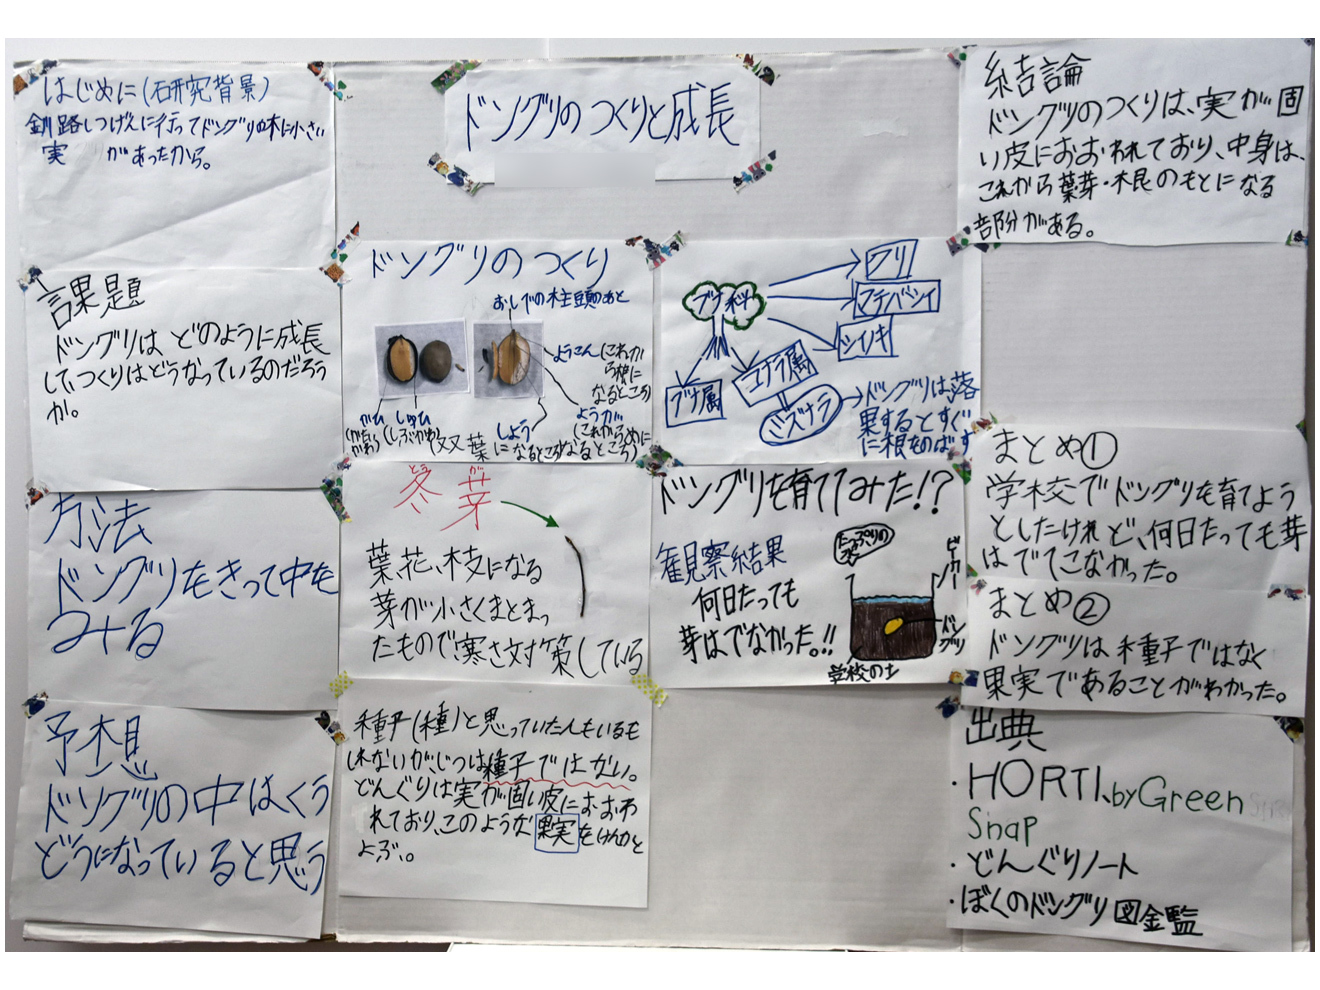 ドングリのつくりと成長
はじめに(研究背景)
釧路しつげんに行ってドングリの木に小さい
実 があったから。
課題
ドングリは どのように成長
して、つくりはどうなっているのだろう
か。
方法
ドングリをきって中を
みる
予想
ドングリの中はくう
どうになっていると思う
ドングリのつくり
おしべの柱頭のあと
ようこん(これか
ら根に
なるところ)
ようが
(これからめに
なるところ)
しよう
(双葉になるところ)
かひ
しゅひ
(しぶかわ)
ブナ科
クリ
マテバシイ
シイノキ
ブナ属
コナラ属
ミズナラ
ドングリは、落
果するとすぐ
に根をのばす
冬芽
とう が
葉、花、枝になる
芽が小さくまとまっ
たもので寒さ対策している
ドングリを育ててみた!?
観察結果
何日たっても
芽はでなかった。!!
たっぷりの
ビーカー
ドングリ
学校の土
種子(種)と思っていた人もいるも
しれないが、じつは種子ではない。
どんぐりは実が固い皮におおわ
れており、このような果実をけんかと
よぶ。
結論
ドングリのつくりは、実が固
い皮におおわれており、中身は、
これから葉芽・根のもとになる
部分がある。
まとめ①
学校でドングリを育てよう
としたけれど、何日たっても芽
はでてこなかった。
まとめ②
ドングリは種子ではなく
果実であることがわかった。
出典
・HORTI、by Green
Snap
・どんぐりノート
・ぼくのドングリ図金監